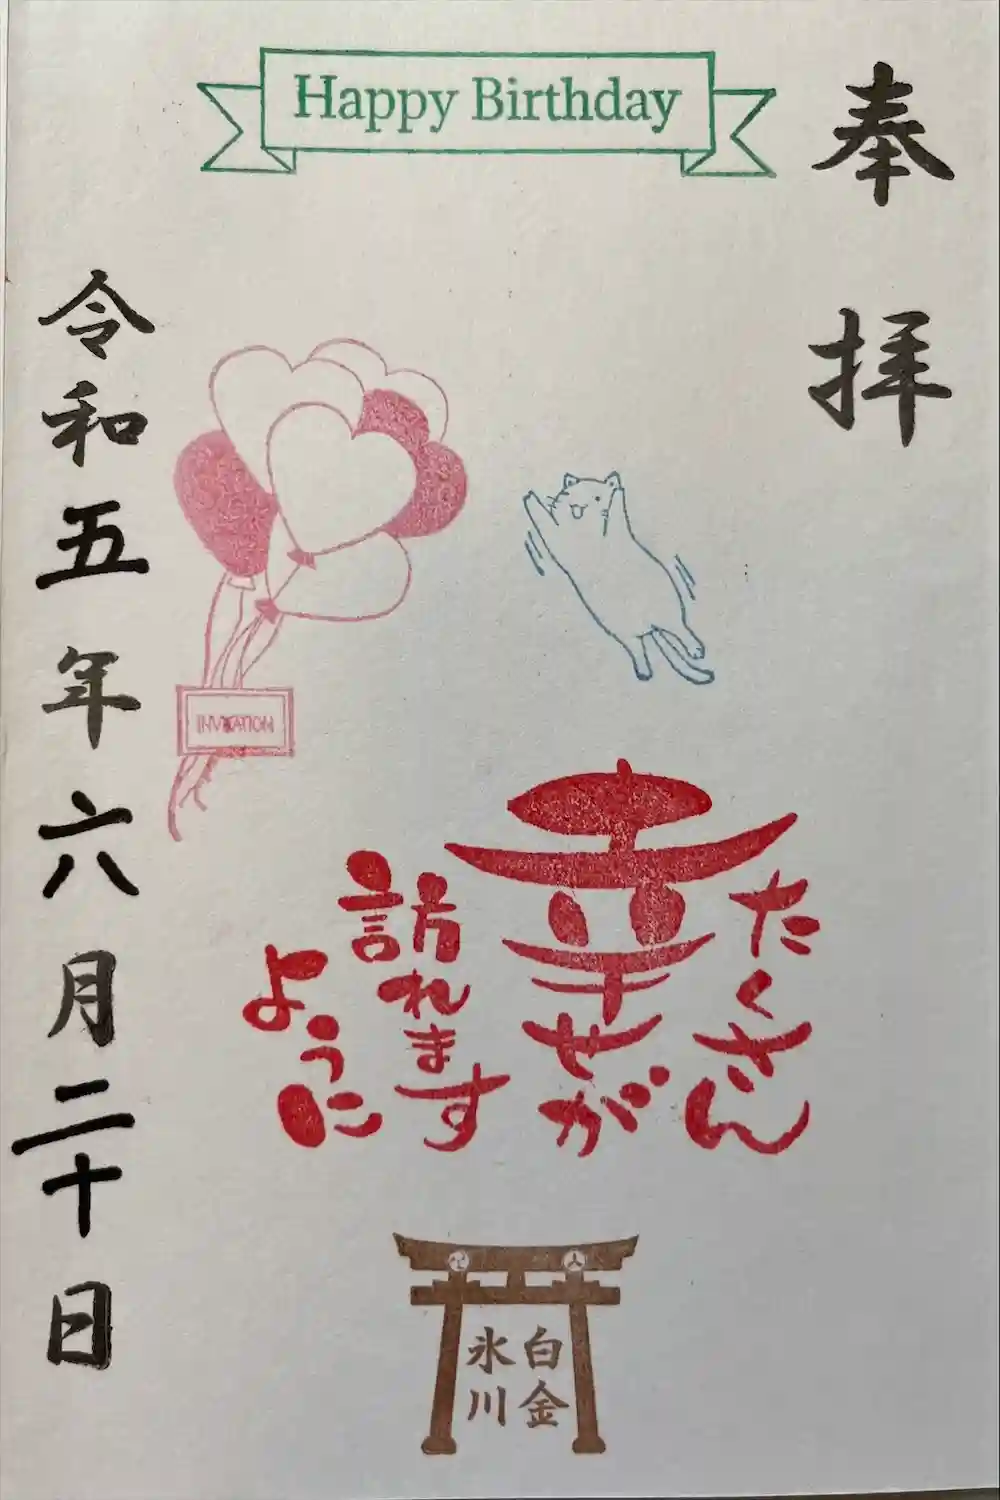 Happy Birthday
奉拝
INVITATION
たくさん
幸せが
訪れます
ように
白金
氷川
令和五年六月二十日